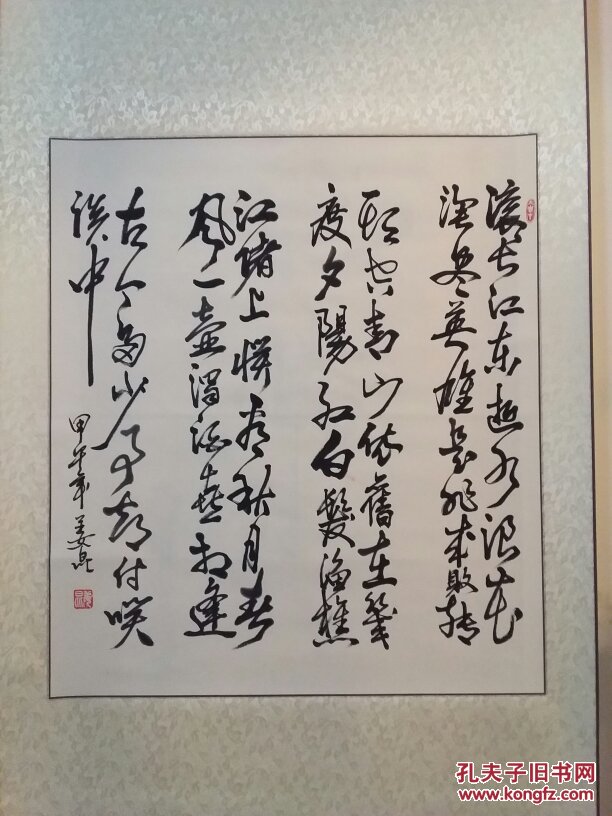 滚滚长江东逝水浪花
淘尽英雄是非成败转
头空青山依舊在幾
度夕陽红白髮渔樵
江渚上惯看秋月春
风一壶濁酒喜相逢
古今多少事都付咲
谈中
甲午年姜昆
孔夫子旧书网
www.kongfz.com